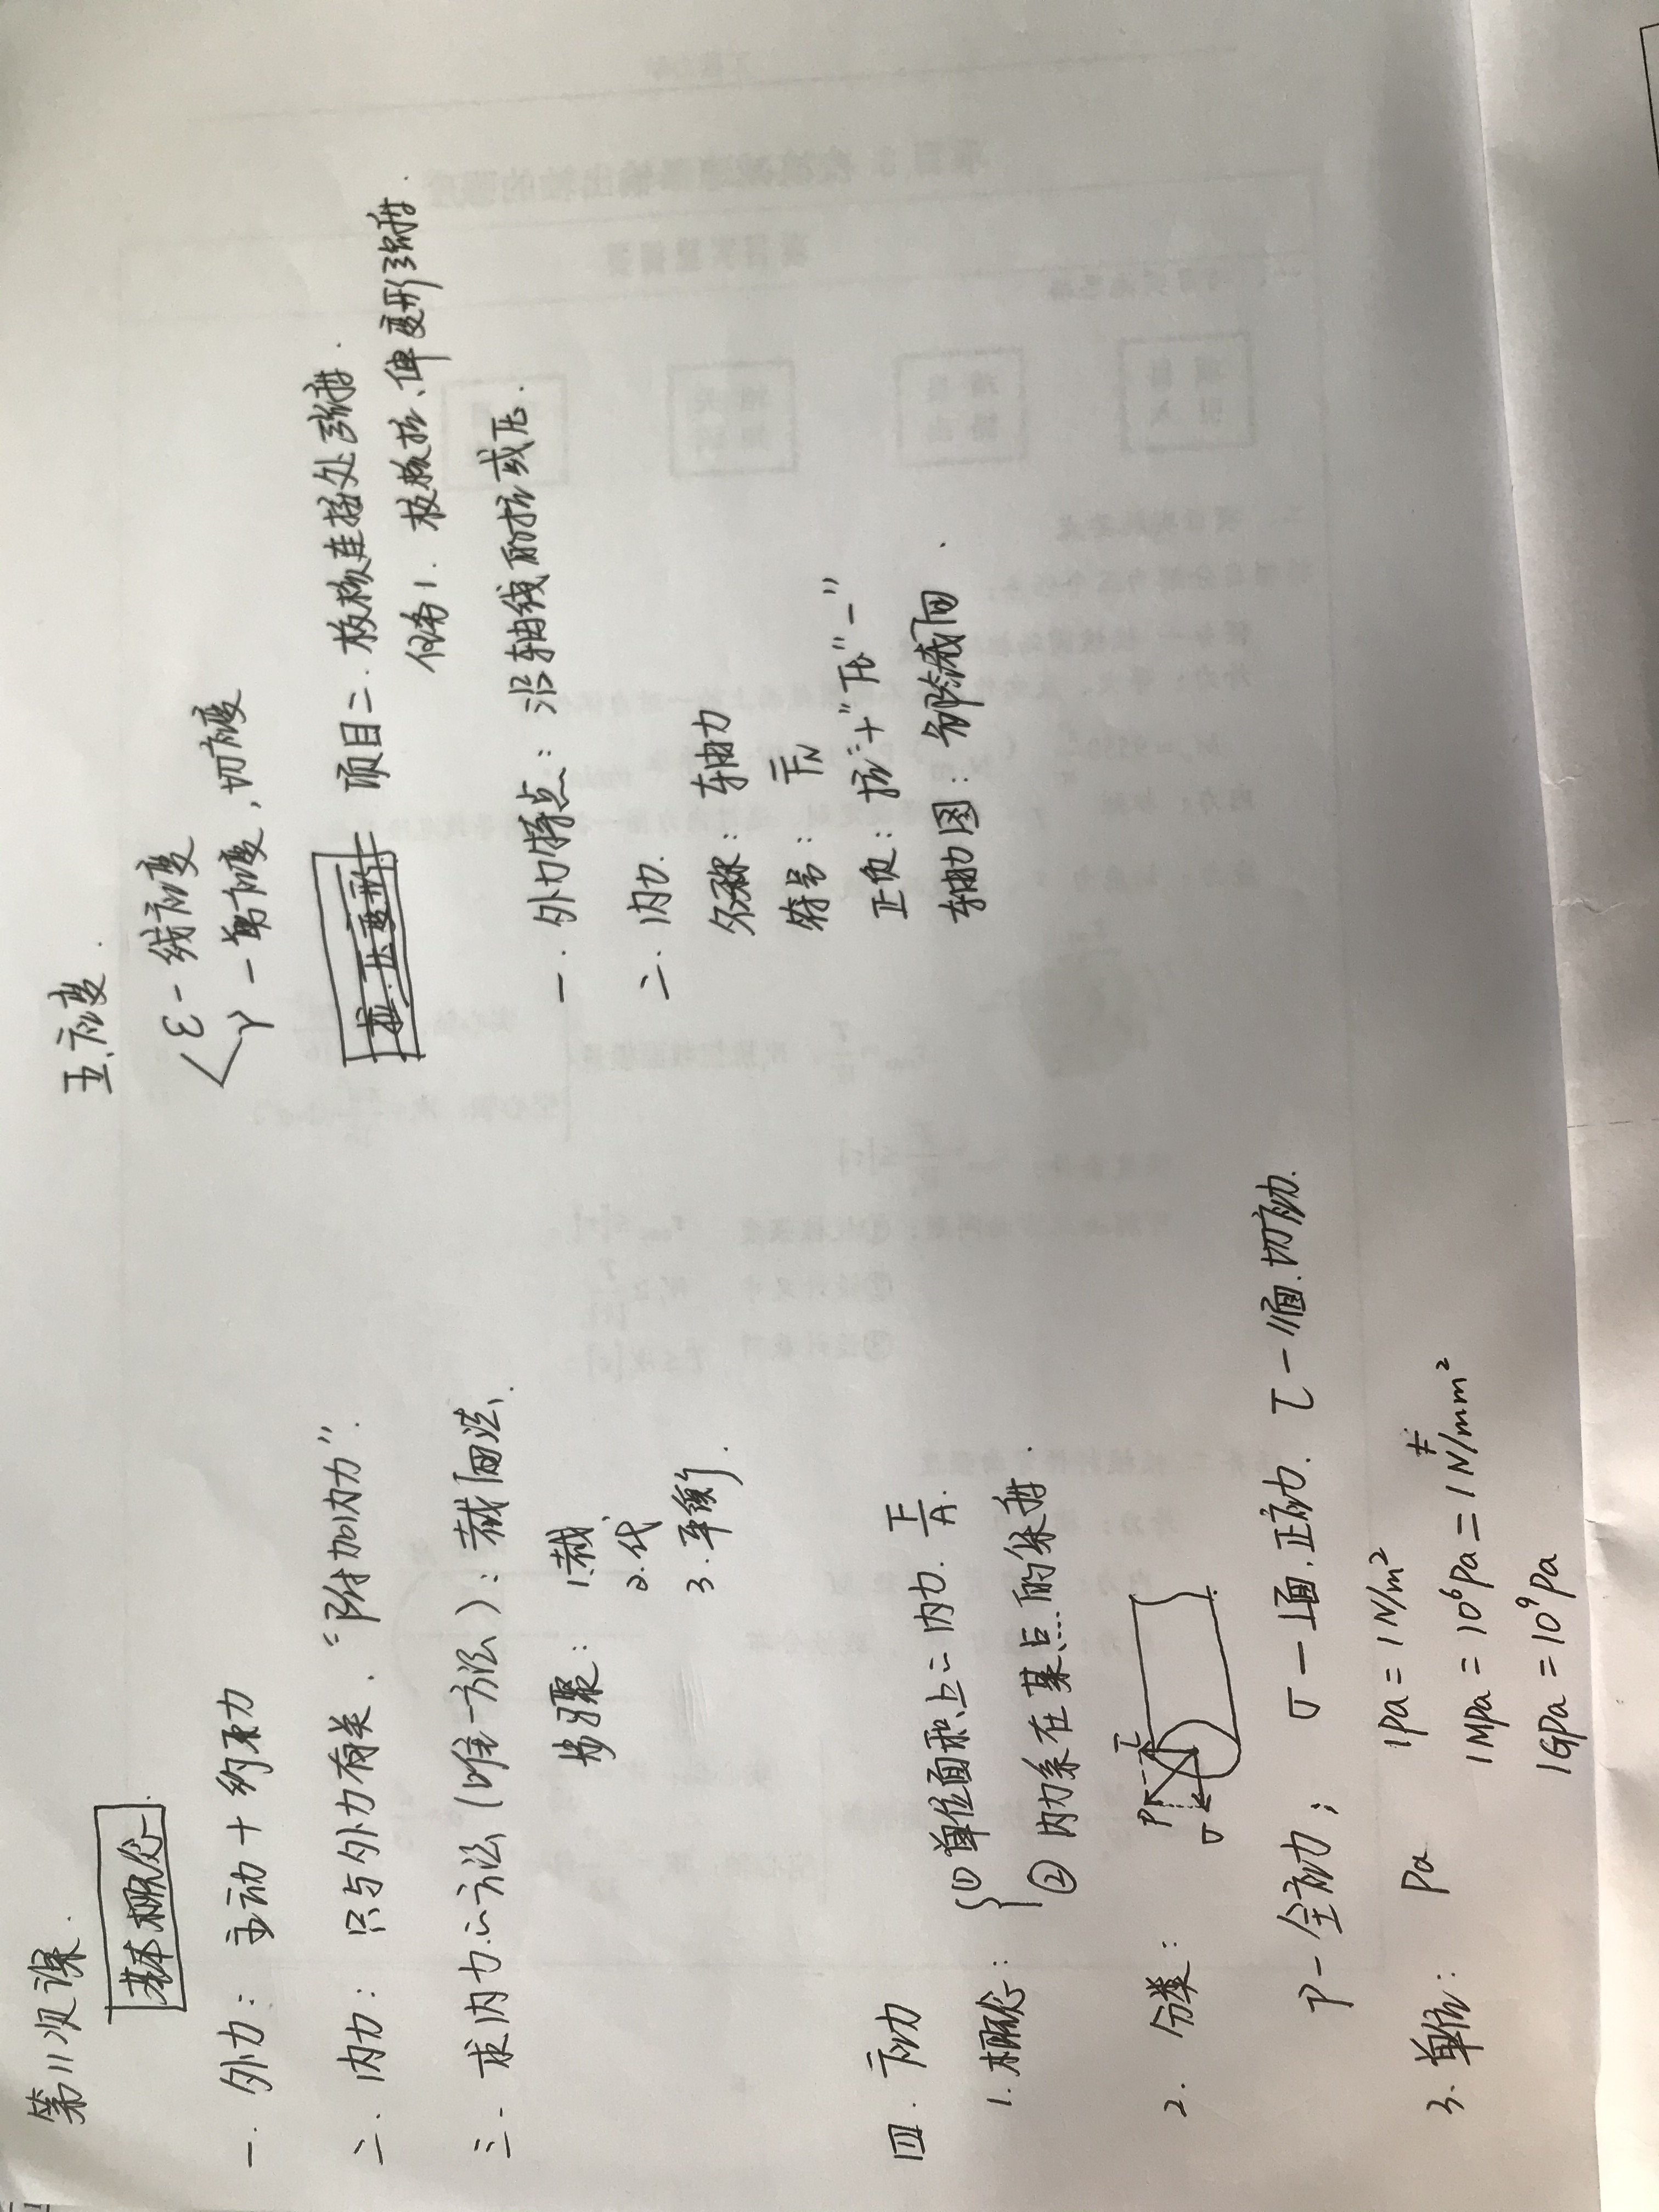 第11次课.
基本概念.
一. 外力: 主动 + 约束力
二. 内力: 只与外力有关. "附加内力".
三. 求内力的方法 (唯一方法): 截面法.
步骤: 1.截
2.代
3.平衡
四. 应力
1.概念: ①单位面积上的内力. F/A.
②内力系在某点的集度
2. 分类:
P τ
σ
P - 全应力; σ - ⊥面.正应力. τ - ∥面.切应力.
3.单位: Pa 1Pa = 1N/m²
1MPa = 10⁶Pa = 1N/mm²
1GPa = 10⁹Pa
五.应变.
ε - 线应变
γ - 剪应变, 切应变
拉.压变形 项目二. 板桥连接处强度.
任务1. 板桥拉、伸变形强度.
一. 外力特点: 沿轴线的拉或压.
二. 内力.
名称: 轴力
符号: FN
正负: 拉"+" 压"-"
轴力图: 危险截面.